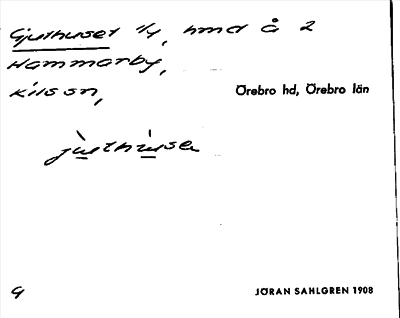 Gjuthuset 1/4, hmd å 2
Hammarby,
Kilsson,
Örebro hd, Örebro län
jùsthùsen
G
JÖRAN SAHLGREN 1908